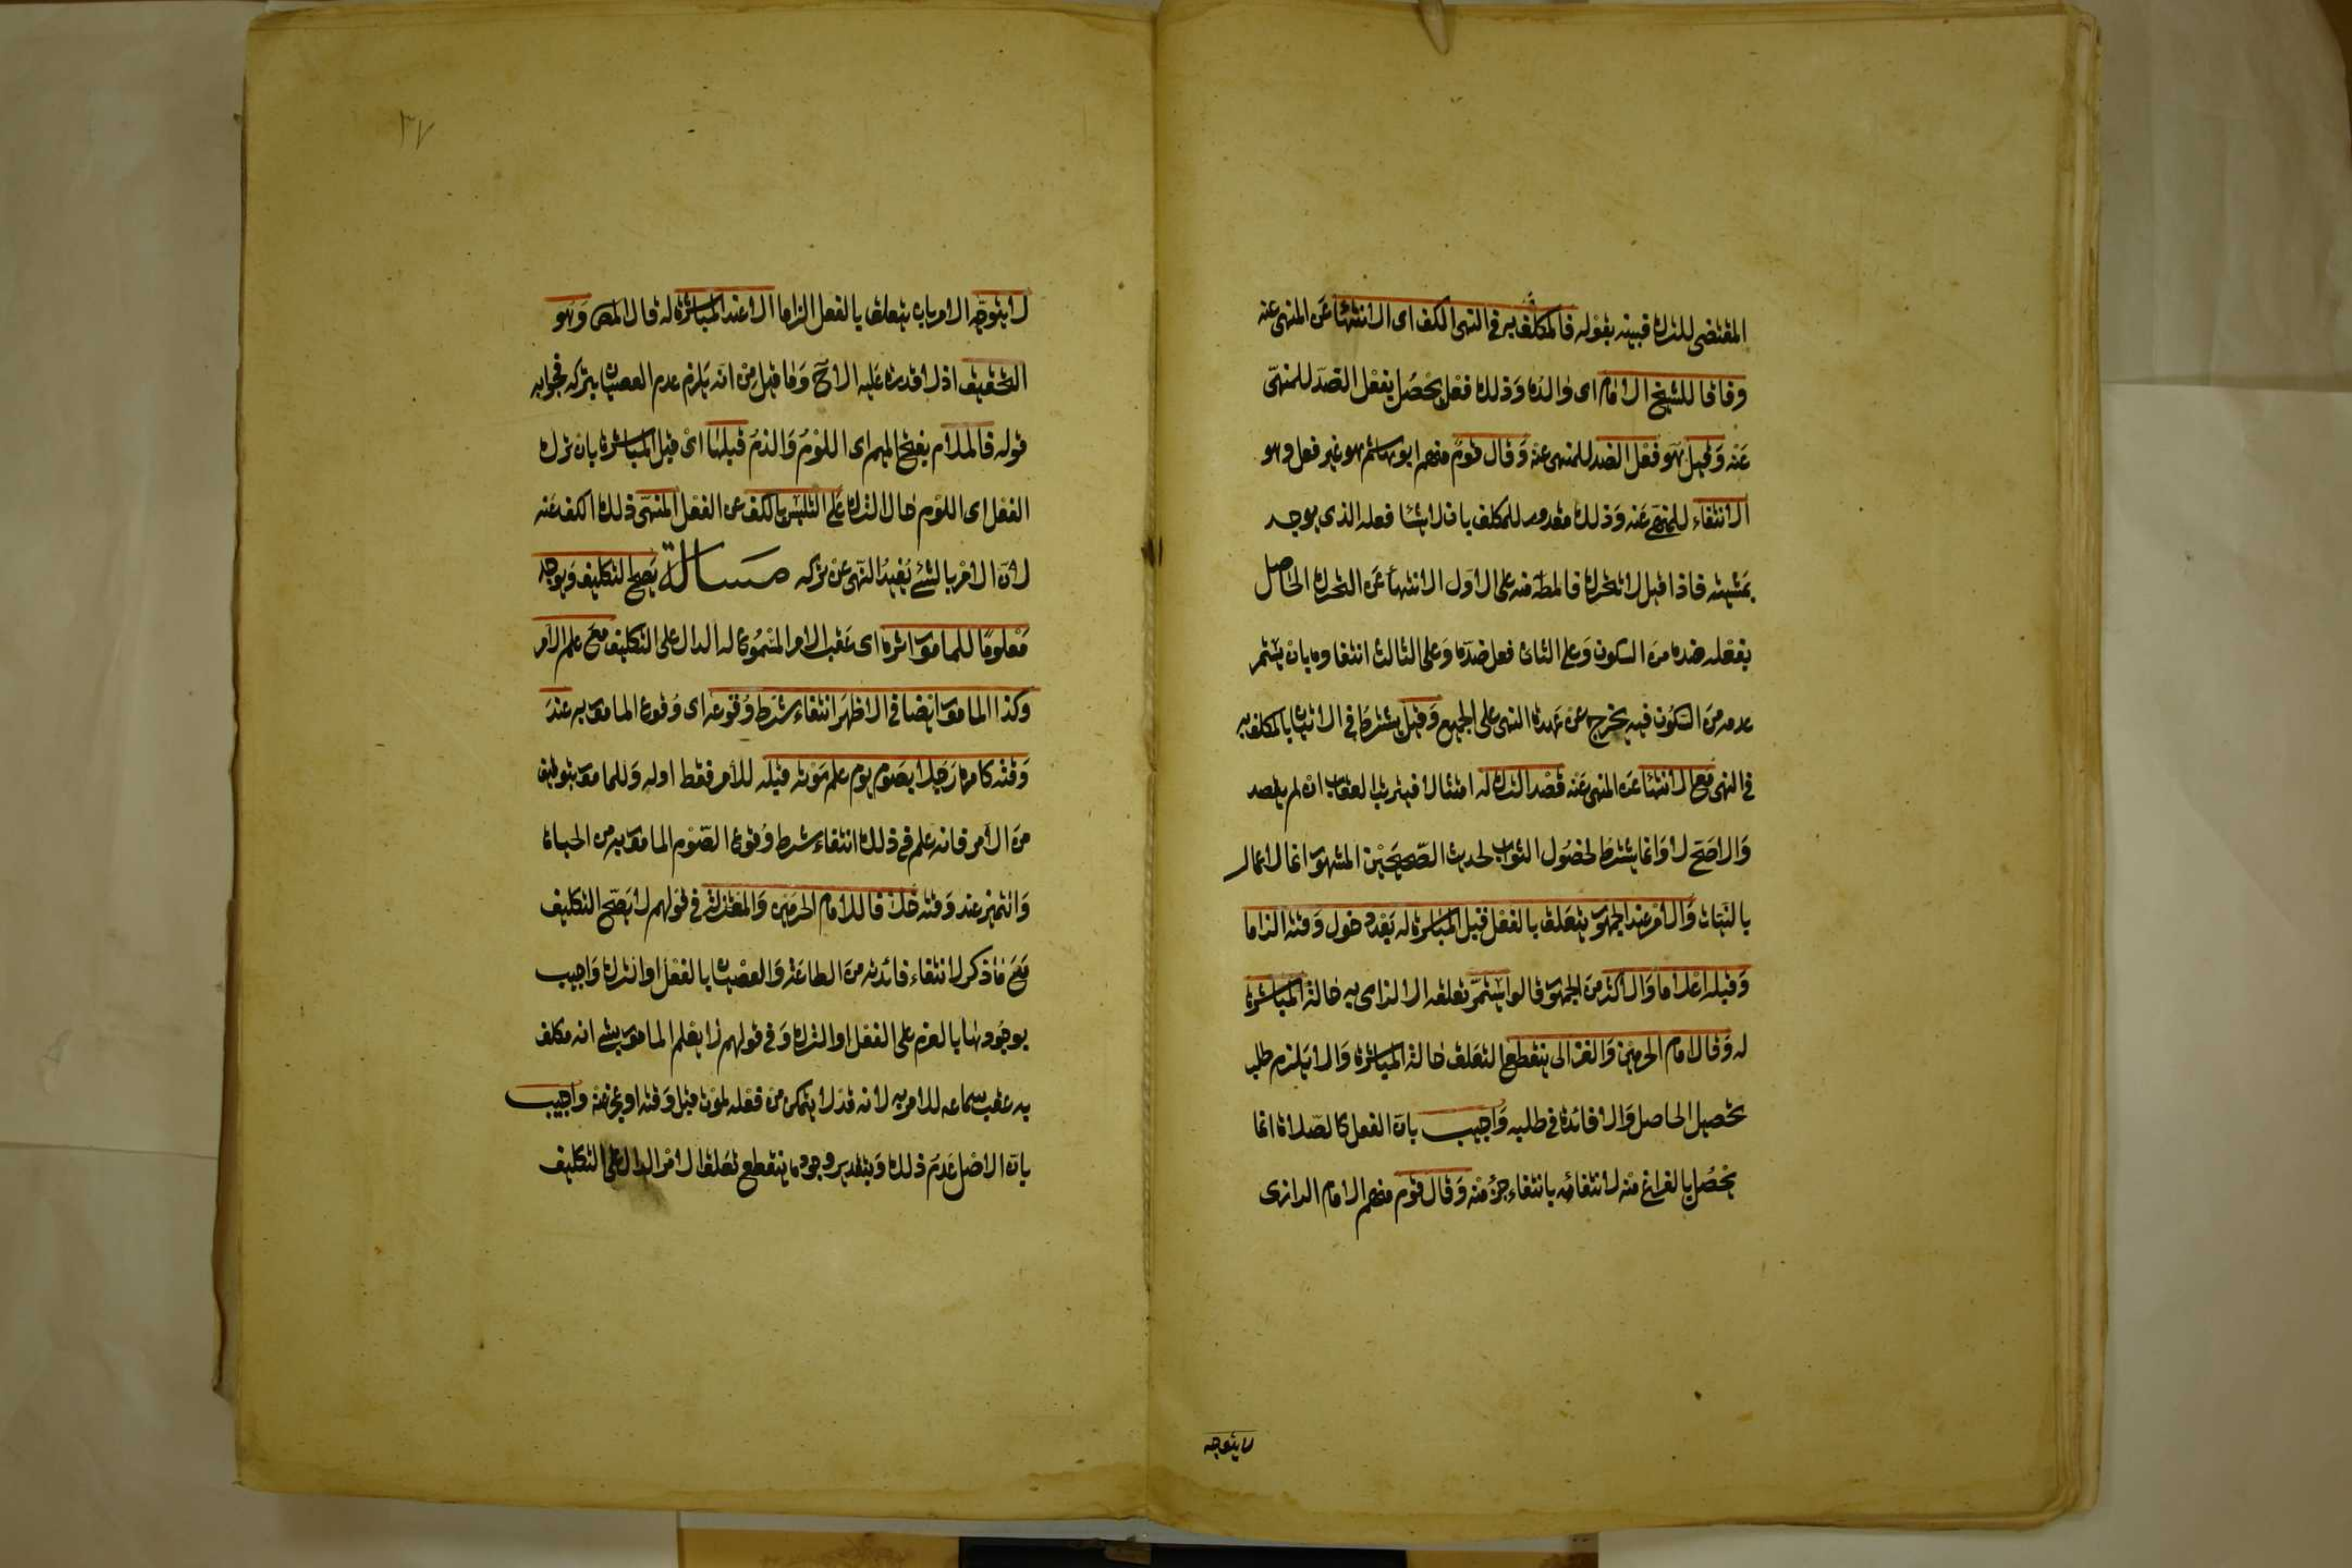 المقتضى للترك فبينه بقوله فالمكلف به في النهى الكف اى الانتهاء عن المنهى عنه
وفاقا للشيخ الامام اى والده وذلك فعل يحصل بفعل الضد للمنهى
عنه وقيل هو فعل الضد للمنهى عنه وقال قوم منهم ابو هاشم هو غير فعل وهو
الانتفاء للمنهى عنه وذلك مقدور للمكلف بان لا يشا فعله الذى يوجد
بمشيته فاذا قيل لا تتحرك فالمط منه على الاول الانتهاء عن التحرك الحاصل
بفعله ضده من السكون وعلى الثانى فعل ضده وعلى الثالث انتفاوه بان يستمر
عدمه من السكون فبه يخرج عن عهدة النهى على الجميع وقيل يشترط في الاتيان بالمكلف به
في النهى مع الانتهاء عن المنهى عنه قصد الترك له امتثالا فيترتب العقاب ان لم يقصد
والاصح لا وانما يشترط لحصول الثواب لحديث الصحيحين المشهور انما الاعمال
بالنيات والامر عند الجمهور يتعلق بالفعل قبل المباشرة له بعد دخول وقته الزاما
وقبله اعلاما والاكثر من الجمهور قالوا يستمر تعلقه الالزامى به حالة المباشرة
له وقال امام الحرمين والغزالى ينقطع التعلق حالة المباشرة والا يلزم طلب
تحصيل الحاصل ولا فائدة في طلبه واجيب بان الفعل كالصلاة انما
يحصل بالفراغ منه لانتفائه بانتفاء جزء منه وقال قوم منهم الامام الرازى
لا يتوجه
٣٧
لا يتوجه الامر بان يتعلق بالفعل الزاما الا عند المباشرة له قال المص وهو
التحقيق اذ لا قدرة عليه الا ح وما قيل من انه يلزم عدم العصيان بتركه فجوابه
قوله فالملام بفتح الميم اى اللوم والذم قبلها اى قبل المباشرة بان ترك
الفعل اى اللوم حال الترك على التلبس بالكف عن الفعل المنهى ذلك الكف عنه
لان الامر بالشئ يفيد النهى عن تركه مسالة يصح التكليف ويوجد
معلوما للمامور اثره اى عقب الامر المسموع له الدال على التكليف مع علم الامر
وكذا المامور ايضا في الاظهر انتفاء شرط وقوعه اى وقوع المامور به عند
وقته كامر رجل بصوم يوم علم موته قبله للامر فقط او له وللمامور بتوقيف
من الامر فانه علم في ذلك انتفاء شرط وقوع الصوم المامور به من الحياة
والتميز عند وقته خلافا لامام الحرمين والمعتزلة في قولهم لا يصح التكليف
مع ما ذكر لانتفاء فائدته من الطاعة والعصيان بالفعل او الترك واجيب
بوجودها بالعزم على الفعل او الترك وفي قولهم لا يعلم المامور بشى انه مكلف
به عقب سماعه للامر به لانه قد لا يتمكن من فعله لموت قبل وقته او عجز عنه واجيب
بان الاصل عدم ذلك وبتقدير وجوده ينقطع تعلق الامر الدال على التكليف